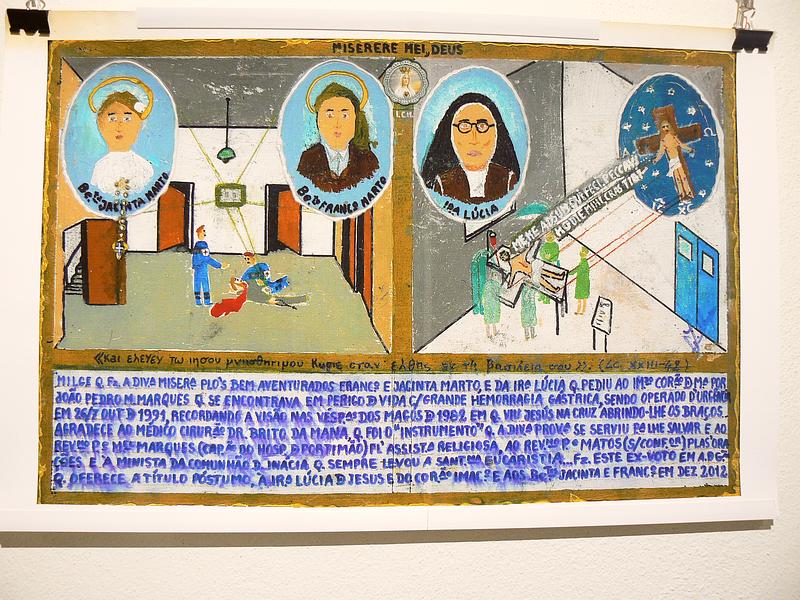 MISERERE MEI, DEUS
I.C.M.
Bcta JACINTA MARTO
Bcto FRANCO MARTO
IRA LÚCIA
HODIE MIHI CRAS TIBI
«και ελεγεν τω ιησου μνησθητι μου Κυριε οταν ελθης εν τη βασιλεια σου». (Lc. XXIII-42)
MILGE Q. Fz. A DIVa MISERa PLO'S BEM-AVENTURADOS FRANCo E JACINTA MARTO, E DA IRa LÚCIA Q. PEDIU AO IMdo CORÃo D Ma POR
JOÃO PEDRO M. MARQUES Q. SE ENCONTRAVA EM PERIGO D VIDA C/GRANDE HEMORRAGIA GÁSTRICA, SENDO OPERADO D'URGÊNCIA
EM 26/7 OUT D 1991, RECORDANDO A VISÃO NAS VÉSPas DOS MAGOS D 1982 EM Q. VIU JESUS NA CRUZ ABRINDO-LHE OS BRAÇOS...
AGRADECE AO MÉDICO CIRURGo DR. BRITO DA MANA, Q. FOI O "INSTRUMENTO" Q. A DIVa PROVa SE SERVIU P/LHE SALVAR E AO
REVmo Pe Mel MARQUES (CAPão DO HOSP. D PORTIMÃO) PLa ASSISTa RELIGIOSA, AO REVmo Pe MATOS (S/CONFor) PLAS ORA
ÇÕES E À MINISTA DA COMUNHÃO D. INÁCIA Q. SEMPRE LEVOU A SANTma EUCARISTIA... Fz. ESTE EX-VOTO EM A.P.Ga
Q. OFERECE A TÍTULO PÓSTUMO, À IRa LÚCIA D JESUS E DO CORão IMACo E AOS Bctos JACINTA E FRANCo EM DEZ 2012